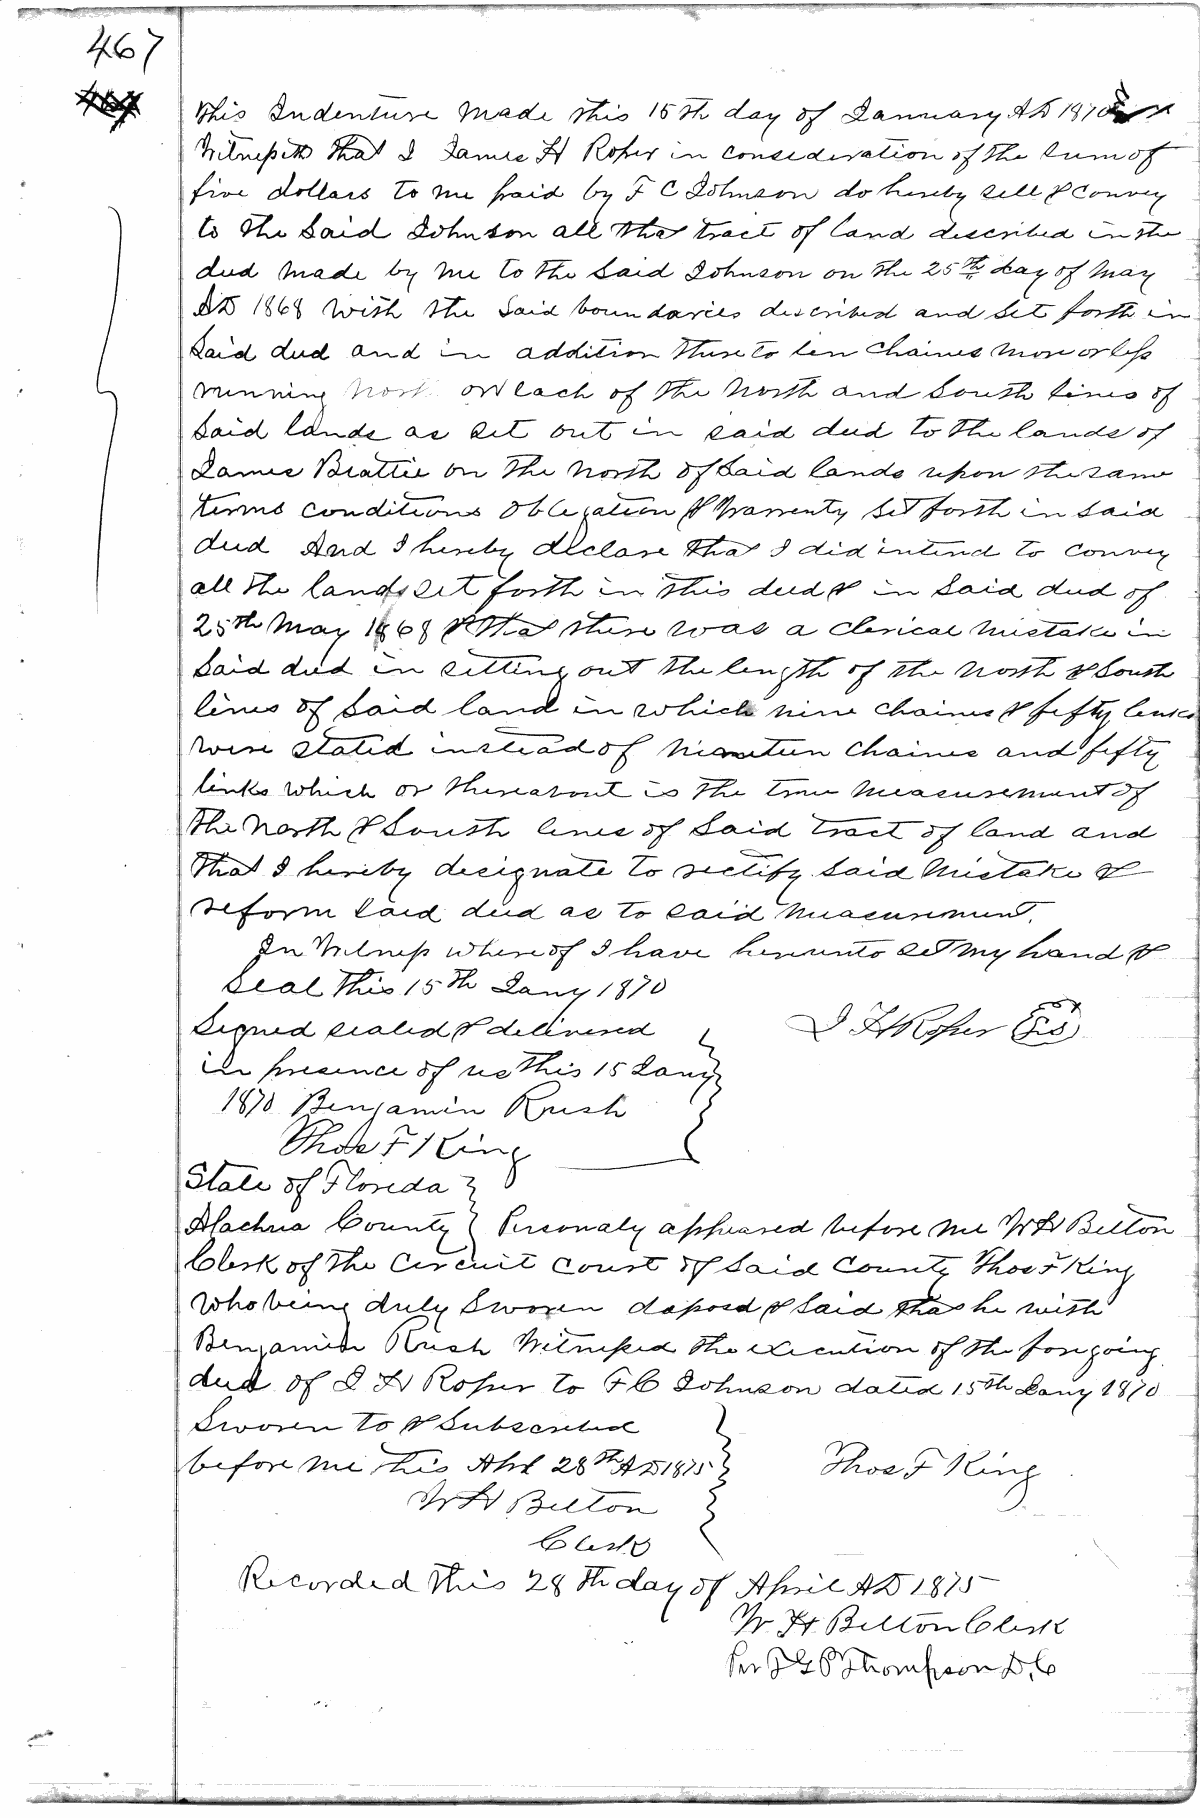 467
This Indenture Made this 15th day of January AD 1870
Witnesseth that I James H Roper in consideration of the sum of
five dollars to me paid by F C Johnson do hereby sell & convey
to the said Johnson all that tract of land described in the
deed made by me to the said Johnson on the 25th day of May
AD 1868 with the said boundaries described and set forth in
said deed and in addition thereto ten chaines more or less
running North on each of the North and South lines of
said lands as set out in said deed to the lands of
James Beattie on the North of said lands upon the same
terms conditions Oblegation & Warrenty set forth in said
deed And I hereby declare that I did intend to convey
all the lands set forth in this deed & in said deed of
25th May 1868 & that there was a clerical mistake in
said deed in setting out the length of the North & South
lines of said land in which nine chaines & fifty links
were stated instead of nineteen chaines and fifty
links which or thereabout is the true measurement of
the North & South lines of said tract of land and
that I hereby designate to rectify said mistake &
reform said deed as to said measurement.
In Witness whereof I have hereunto set my hand &
seal this 15th Jany 1870
Signed sealed & delivered
J H Roper
in presence of us this 15 Jany
1870 Benjamin Rush
Thos F King
State of Florida
Alachua County } Personaly appeared before me W H Belton
Clerk of the Circuit Court of said County Thos F King
who being duly sworen deposd & said that he with
Benjamin Rush Witnessed the execution of the foregoing
deed of J H Roper to F C Johnson dated 15th Jany 1870
Sworen to & Subscribed
before me this Apl 28th AD 1875
Thos F King
W H Belton
Clerk
Recorded this 28th day of April AD 1875
W. H. Belton Clerk
Per F G P Thompson D.C